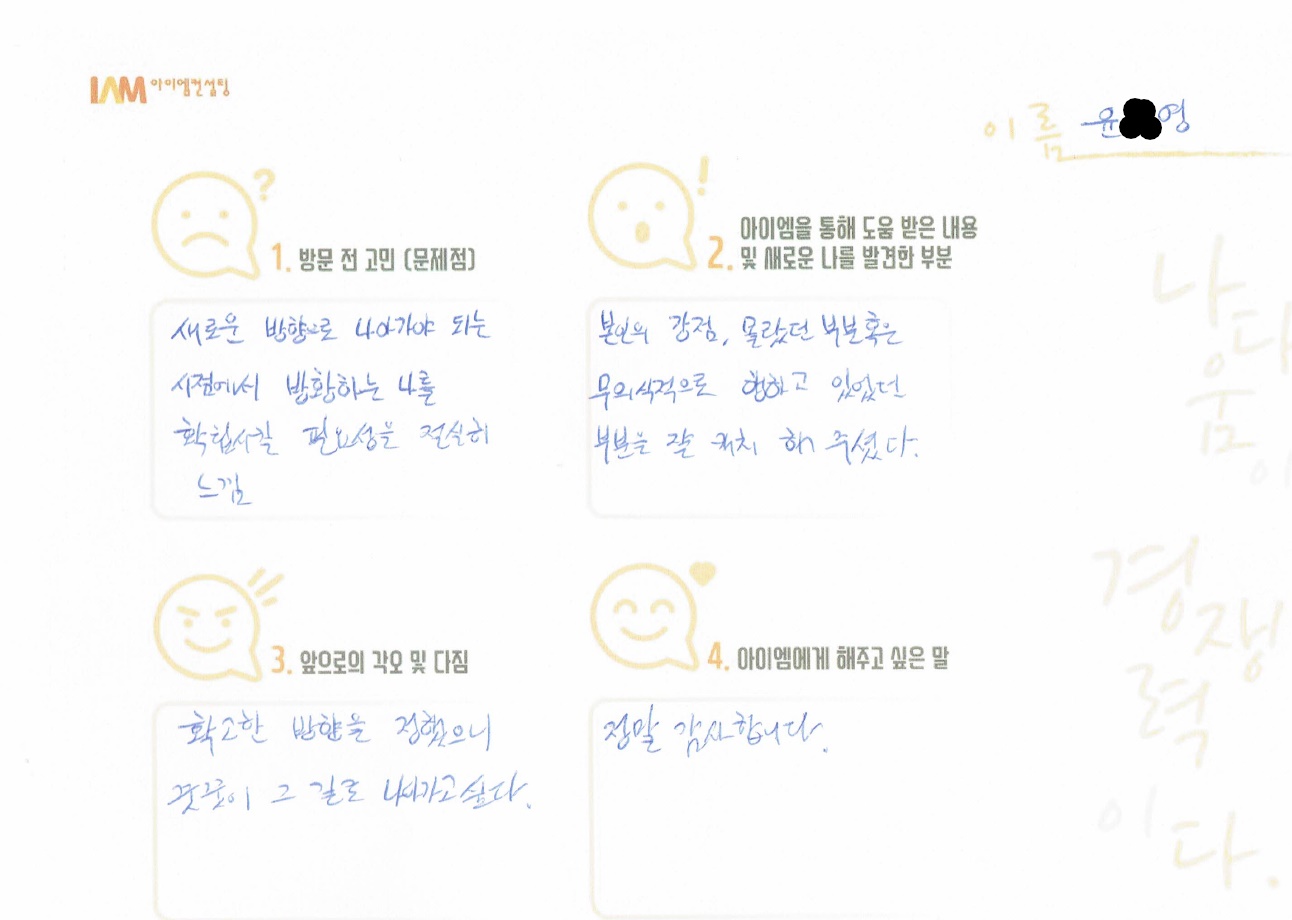 IAM 아이엠컨설팅
이름 윤 영
1. 방문 전 고민 (문제점)
새로운 방향으로 나아가야 되는
시점에서 방황하는 나를
확립시킬 필요성을 절실히
느낌
2. 아이엠을 통해 도움 받은 내용
및 새로운 나를 발견한 부분
본인의 강점, 몰랐던 부분 혹은
무의식적으로 행하고 있었던
부분을 잘 캐치 해 주셨다.
3. 앞으로의 각오 및 다짐
확고한 방향을 정했으니
꿋꿋이 그 길로 나아가고 싶다.
4. 아이엠에게 해주고 싶은 말
정말 감사합니다.
나다
움이
경쟁
력
이다.